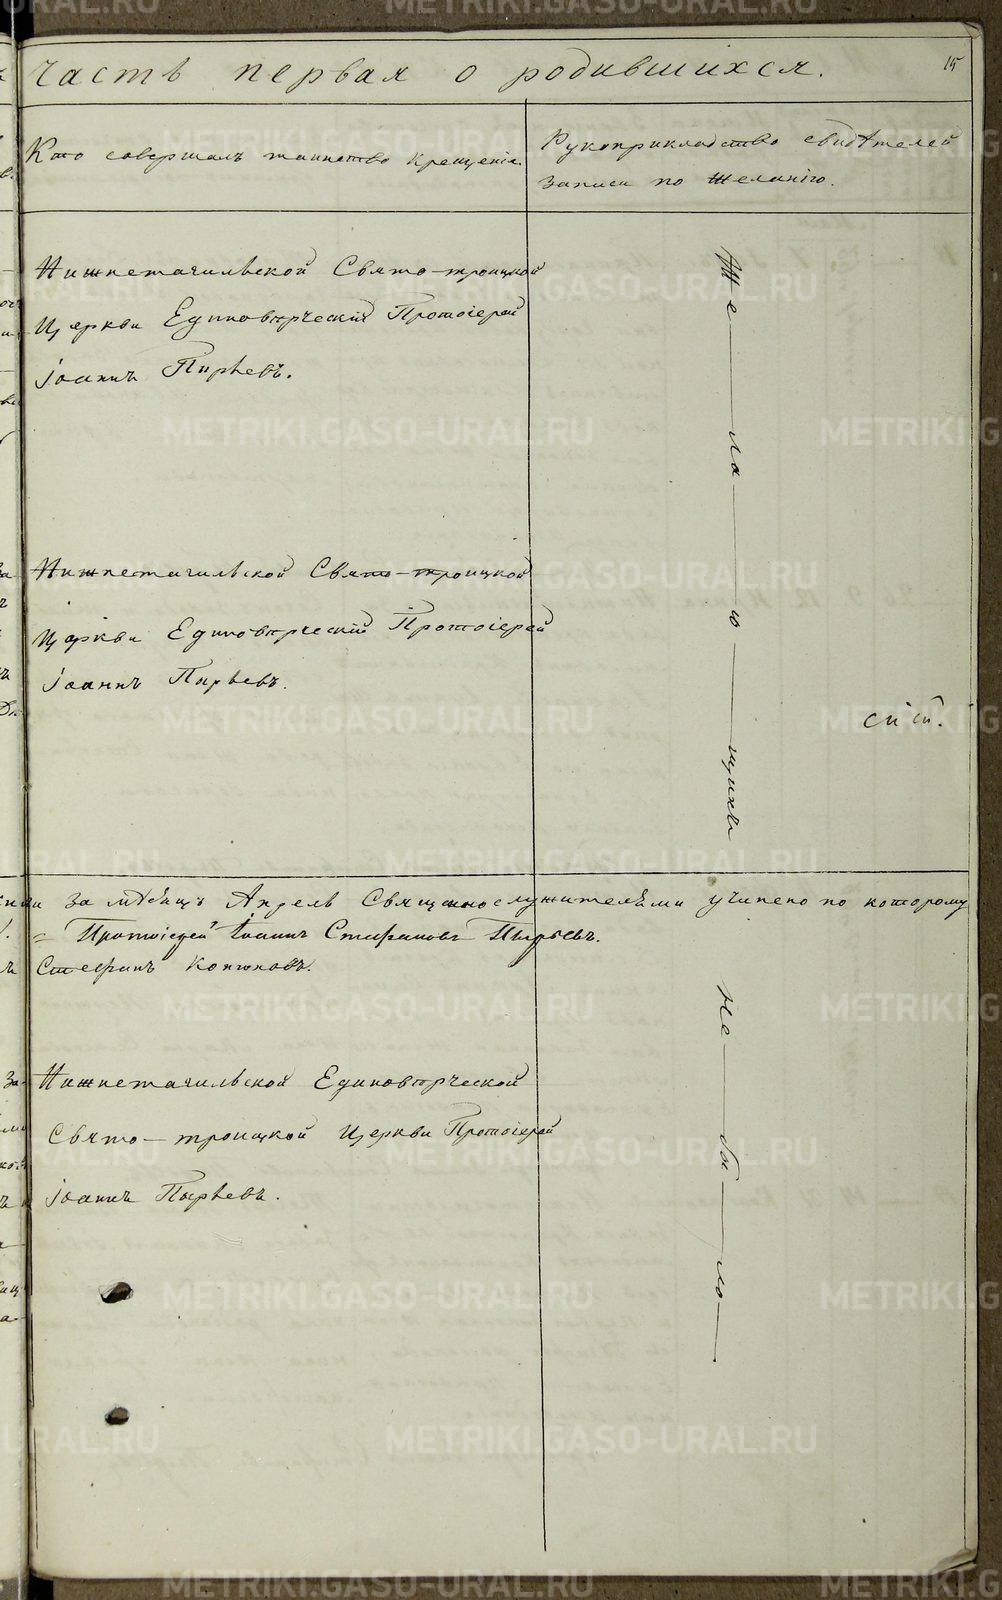 Часть первая о родившихся.
15
Кто совершалъ таинство крещенія.
Рукоприкладство свидѣтелей
записи по желанію.
Нижнетагильской Свято-троицкой
Церкви Единовѣрческій Протоіерей
Іоаннъ Пырьевъ.
Нижнетагильской Свято-троицкой
Церкви Единовѣрческій Протоіерей
Іоаннъ Пырьевъ.
Же ла ю щихъ
за мѣсяцъ Апрель Священнослужителями учинено по которому
= Протоіерей Іоаннъ Стефановъ Пырьевъ.
Стефанъ Конюховъ.
Нижнетагильской Единовѣрческой
Свято-троицкой Церкви Протоіерей
Іоаннъ Пырьевъ.
не бы ло
METRIKI.GASO-URAL.RU